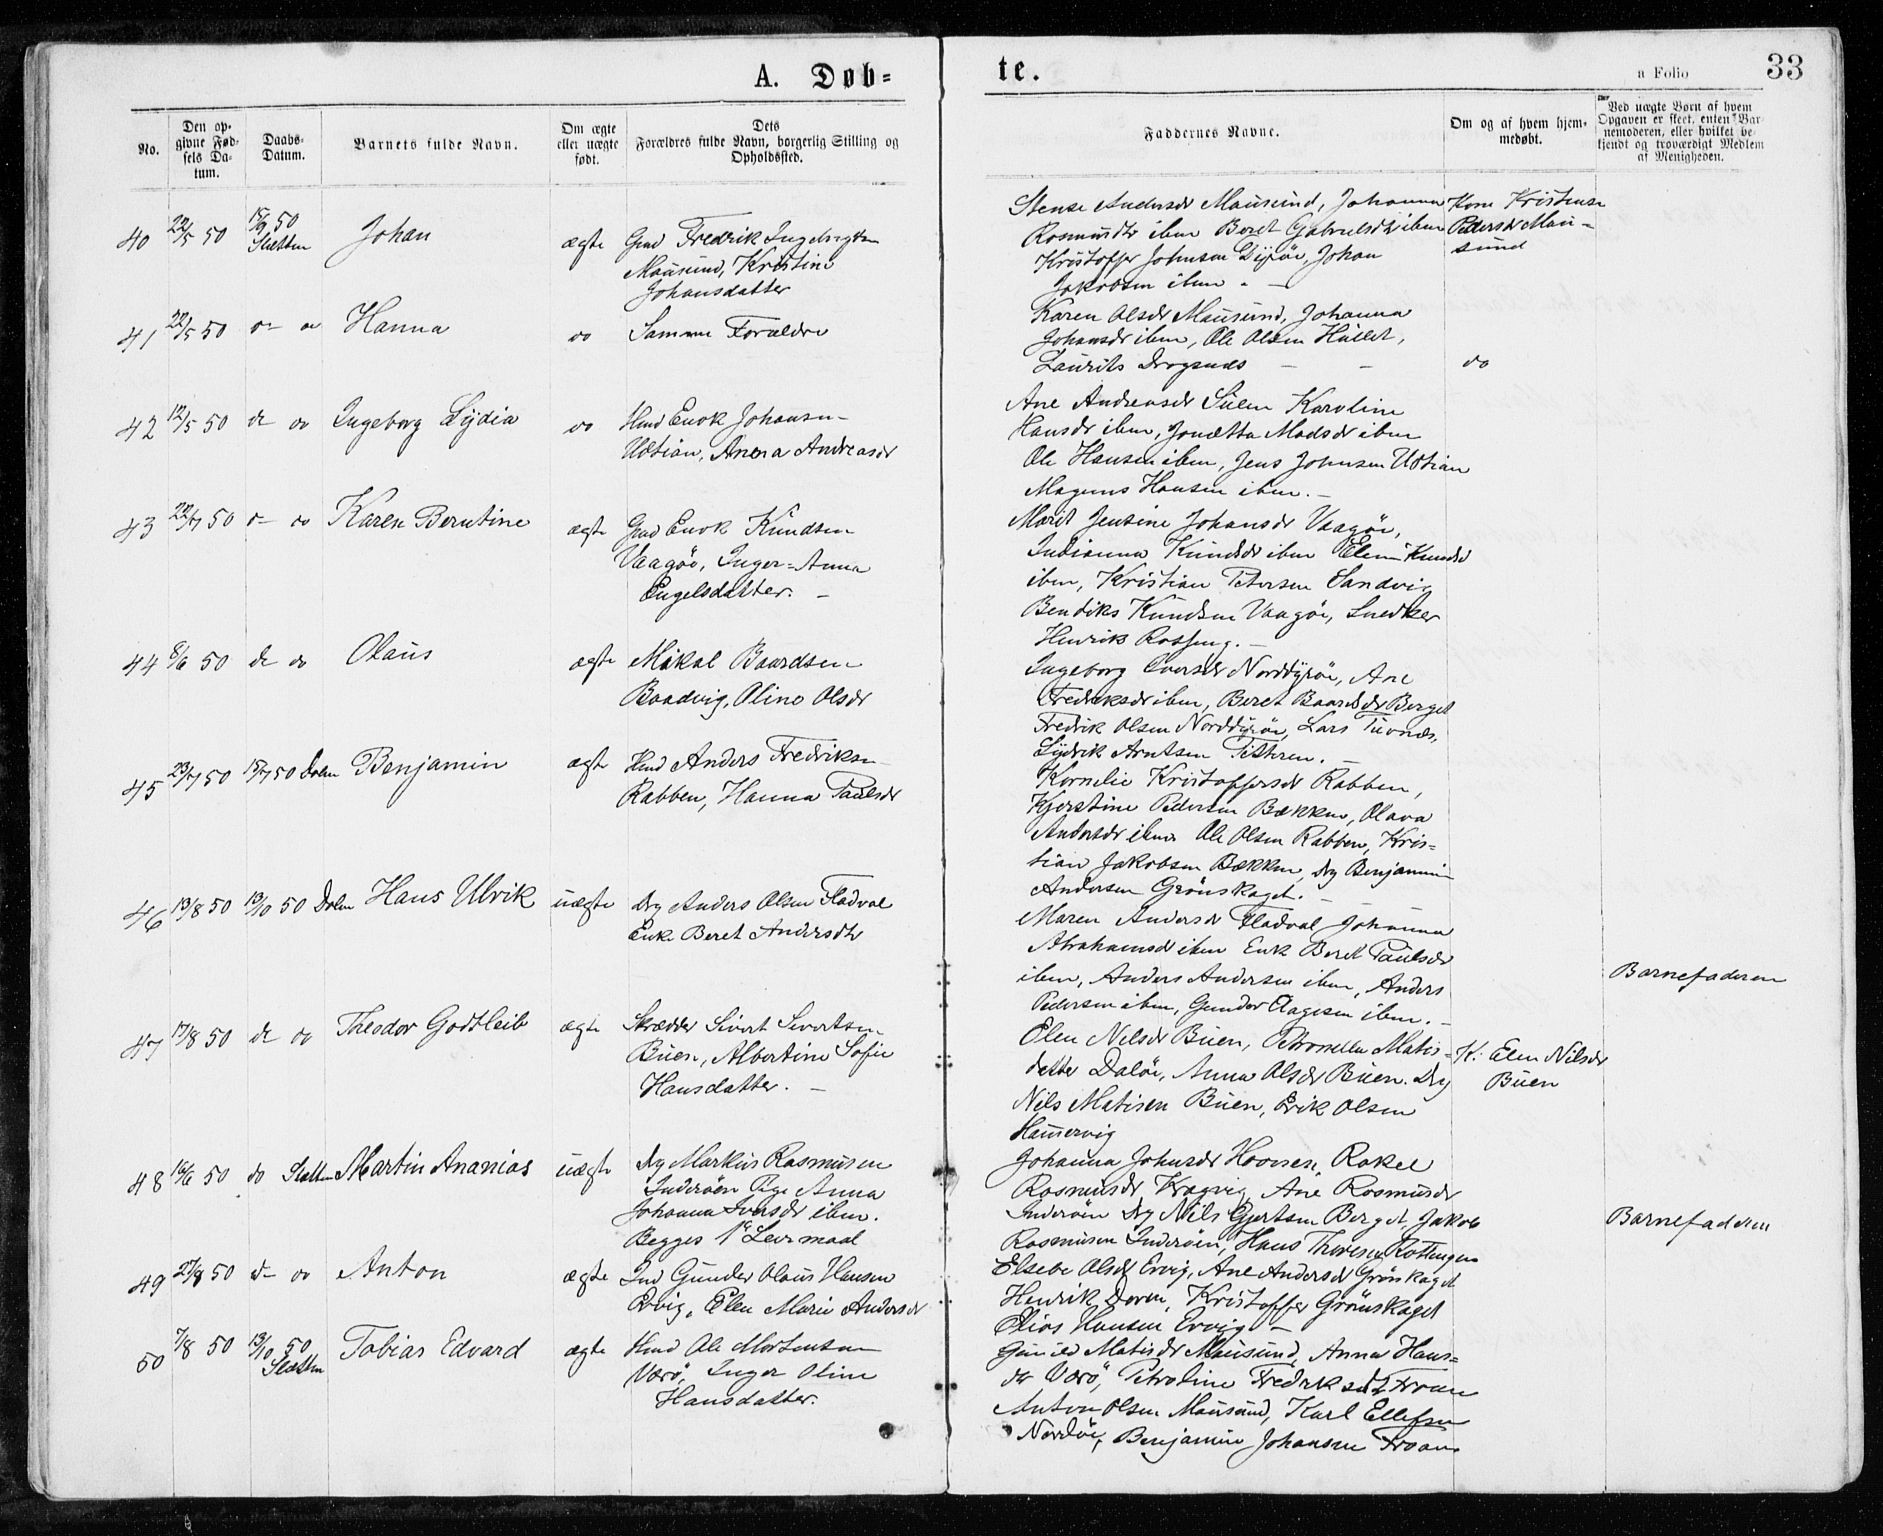 A. Døb=
te.
a Folio 33
No.
Den op-
givne Fød-
sels Da-
tum.
Daabs-
Datum.
Barnets fulde Navn.
Om ægte
eller uægte
født.
Dets
Forældres fulde Navn, borgerlig Stilling og
Opholdssted.
Faddernes Navne.
Om og af hvem hjem-
medøbt.
Ved uægte Børn af hvem
Opgaven er skeet, enten Bar-
nemoderen, eller hvilket be-
kjendt og troværdigt Medlem
af Menigheden.
40 22/5 50 15/9 50
Slætten
Johan
ægte
Gmd Fredrik
Mausund, Kristine
Johansdatter
Stense Andersdr Mausund, Johanna
Rasmusdtr ibm Beret Gabrielsdtr ibm
Kristoffer Johnsen Dyrøe, Johan
Jakobsen ibm. –
Kone Kristense
Pedersdr Mau-
sund
41 22/5 50 do do Hanna do Samme Forældre
Karen Olsdr Mausund, Johanna
Johansdr ibm, Ole Olsen Hallet,
Laurits Dragsnæs – –
do
42 12/5 50 do do Ingeborg Lydia do
Hmd Enok Johansen
Udtian, Anna Andreasdr
Ane Andreasdr Sulen Karoline
Hansdr ibm, Jonetta Madsdr ibm
Ole Hansen ibm, Jens Johnsen Udtian
Magnus Hansen ibm. –
43 22/7 50 do do Karen Berntine ægte
Gmd Enok Knudsen
Vaagøe, Inger=Anna
Engelsdatter. –
Marit Jensine Johansdr Vaagøe,
Indianna Knudsdr ibm Elen Knudsd
ibm, Kristian Petersen Sandvig
Bendiks Knudsen Vaagøe, Snedker
Henrik
44 8/6 50 do do Olaus ægte
Mikal Baardsen
Baadvig, Oline Olsdr
Ingeborg Norddyrøe, Ane
Fredriksdr ibm, Beret Baardsdr Berget
Fredrik Olsen Norddyrøe, Lars Tuvnæs,
Lydrik Arntsen Titteren. –
45 23/7 50 15/7 50 Dolm Benjamin ægte
Hmd Anders Fredriksen
Rabben, Hanna Paulsdr
Kornelie Kristoffersdr Rabben,
Kjerstine Pedersen Bækken, Olava
Andersdr ibm Ole Olsen Rabben, Kris=
tian Jakobsen Bækken, Drg Benjamin
Andersen Grønskaget. –
46 13/8 50 13/10 50 Dolm Hans Ulrik uægte
Drg Anders Olsen Fladval
Enke Beret Andersdtr
Maren Andersdr Fladval Johanna
Abrahamsd ibm Enk Beret Paulsdr
ibm, Anders Andersen ibm, Anders
Pedersen ibm, Gunder Aagesen ibm. –
Barnefaderen
47 17/8 50 do do Theodor Godtleib ægte
Skrædder Sivert Sivertsen
Buen, Albertine Sofie
Hansdatter. –
Elen Nilsdr Buen, Petronella Matis=
datter Daløe, Anna Olsdr Buen. Drg
Nils Matisen Buen, Erik Olsen
Hamervig
K. Elen Nilsdr
Buen
48 16/6 50 do Slætten Martin Ananias uægte
Drg Markus Rasmusen
Inderøen Pige Anna
Johanna Iversdr ibm.
Begges 1ste Leiermaal
Johanna Johnsdr Rakel
Rasmusdr Kragvig, Ane Rasmusdr
Inderøen Drg Nils Gjertsen Berget, Jakob
Rasmusen Inderøen, Hans
Barnefaderen
49 27/8 50 do do Anton ægte
Ind Gunder Olaus Hansen
Ervig, Elen Marie Andersdr
Elsebe Olsdr Ervig, Ane Andersdr Grønskaget
Henrik Kristoffer Grønskaget
Elias Hansen Ervig –
50 7/8 50 13/10 50
Slætten
Tobias Edvard ægte
Hmd Ole Mortensen
Værø, Inger Oline
Hansdatter.
Gunild Matisdr Mausund, Anna Hans=
dr Værø, Petroline Fredriksdtr Froan
Anton Olsen Mausund, Karl Ellefsen
Nordøe, Benjamin Johansen Froan